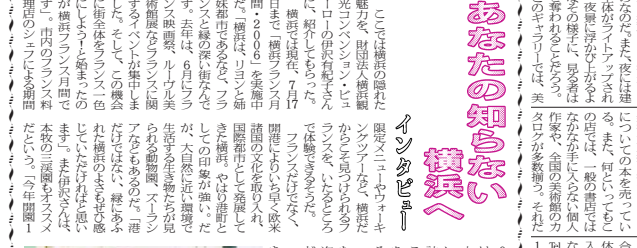 なのだ。また、夜には建
体がライトアップされ
、夜景に浮かび上がるよ
その様子に、見る者は
奪われることだろう。
このギャラリーでは、美
についての本を売ってい
る。また、何といってもこ
の店では、一般の書店では
なかなか手に入らない個人
作家や、全国の美術館のカ
タログが多数揃う。それだ
あなたの知らない
横浜へ
インタビュー
ここでは横浜の隠れた
魅力を、財団法人横浜観
光コンベンション・ビュ
ーローの伊沢有紀子さん
に、紹介してもらった。
横浜では現在、7月17
日まで「横浜フランス月
間・2006」を実施中
だ。「横浜は、リヨンと姉
妹都市であるなど、フラ
ンスと縁の深い街なんで
す。去年は、6月にフラ
ンス映画祭、ルーヴル美
術館展などフランスに関
するイベントが集中しま
した。そして、この機会
に街全体をフランス一色
にしよう!と始まったの
が横浜フランス月間で
す」。市内のフランス料
理店のシェフによる期間
限定メニューやウォーキ
ングツアーなど、横浜だ
からこそ見つけられるフ
ランスを、いたるところ
で体験できるそうだ。
フランスだけでなく、
開港によりいち早く欧米
諸国の文化を取り入れ、
国際都市として発展して
きた横浜。やはり港町と
しての印象が強い。だ
が、大自然に近い環境で
生活する生き物たちが見
られる動物園、ズーラシ
アなどもあるのだ。「港
だけではない、緑にあふ
れた横浜のよさもぜひ感
じていただければと思い
ます」。また伊沢さんは、
本牧の三渓園もオススメ
だという。「今年開園1